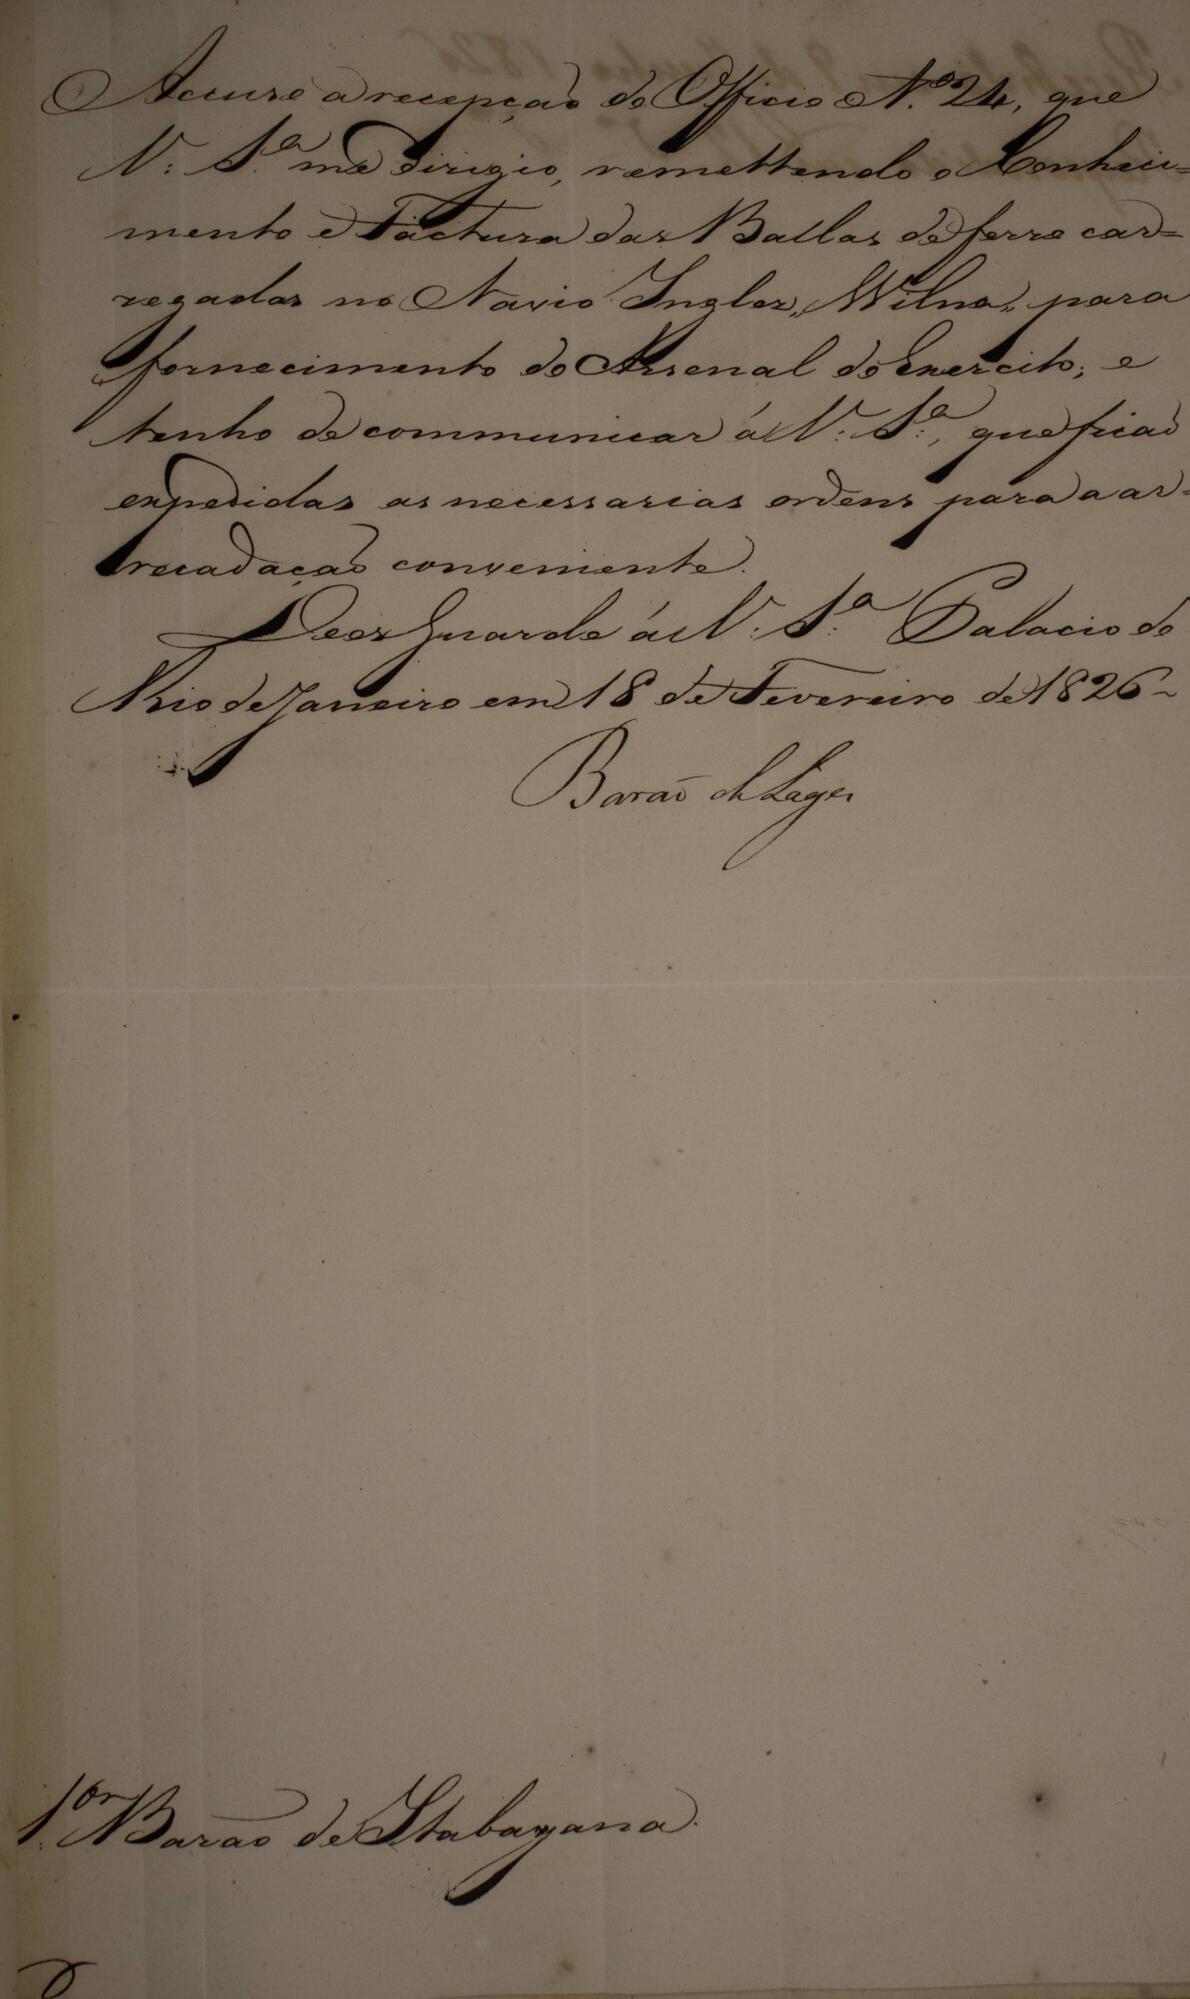 Accuso a recepção do Officio N.º 24, que
V: S.ª me dirigio, remettendo o Conheci=
mento e Factura das Ballas de ferro car=
regadas no Navio Inglez „Wilna„ para
fornecimento do Arsenal do Exercito; e
tenho de communicar á V: S.ª, que ficaõ
expedidas as necessarias ordens para a ar=
recadaçaõ conveniente.
Deos Guarde á V: S.ª Palacio do
Rio de Janeiro em 18 de Fevereiro de 1826~
Baraõ de Lages
S.ºr Baraõ de Itabayana.